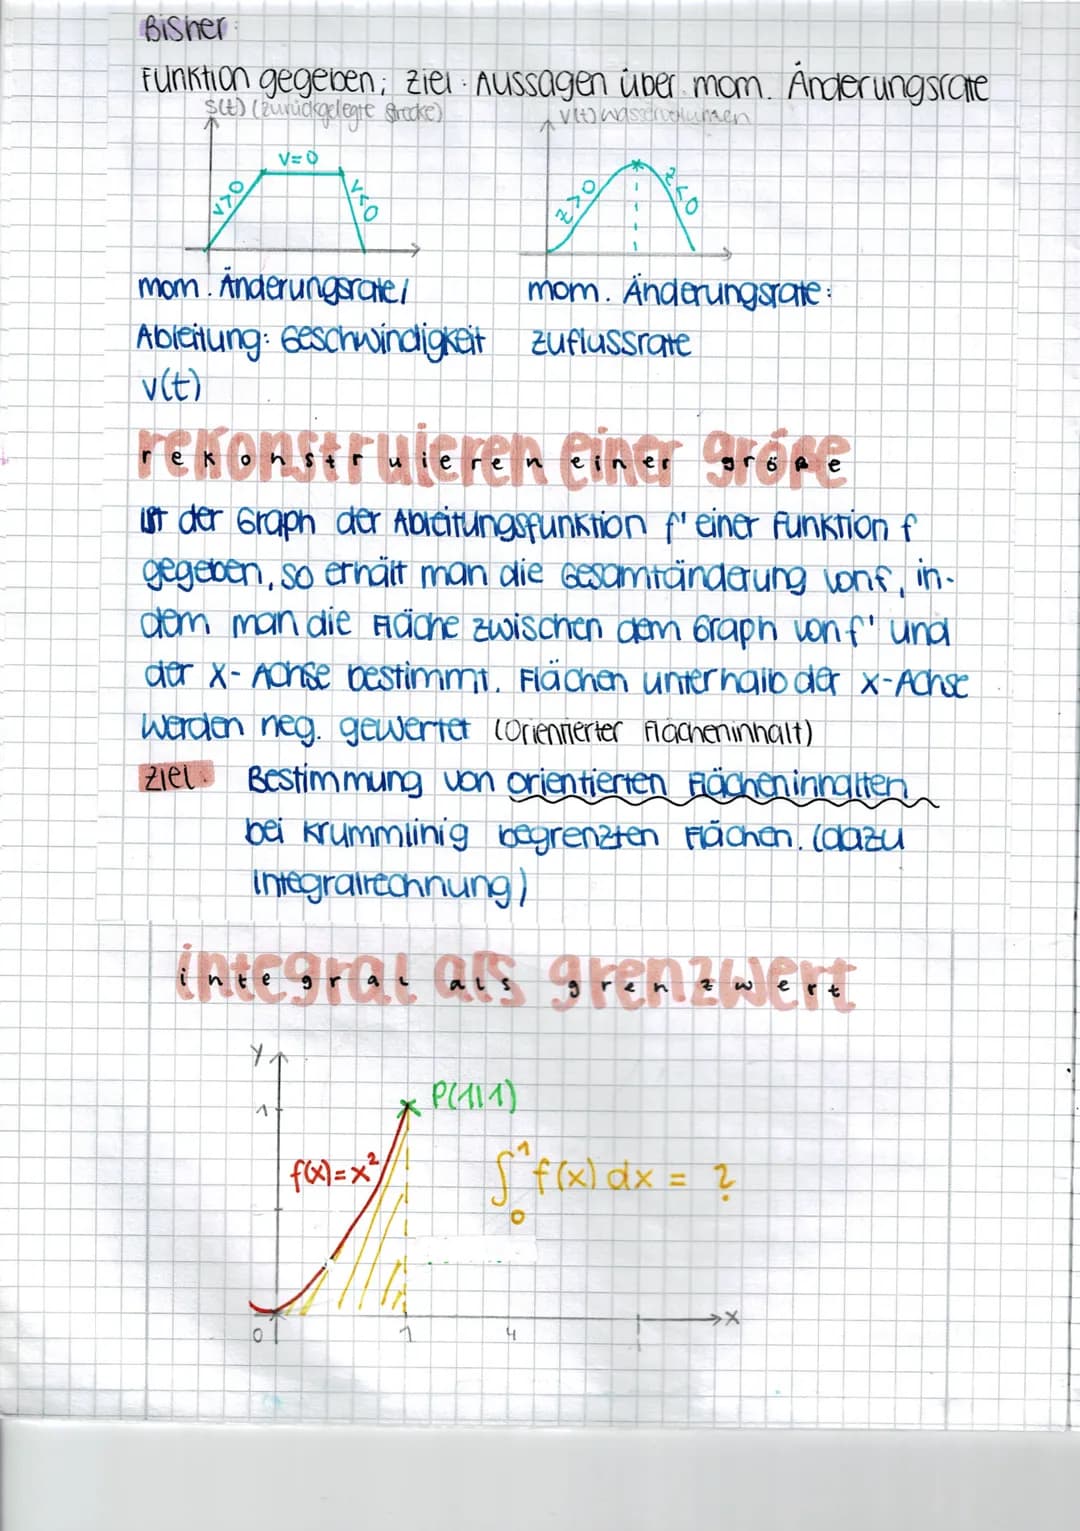 Bisher:
Funktion gegeben; Ziel: Aussagen über mom. Änderungsrate
S(t) (zurückgelegte Strecke)
V(t) Wasservolumen
v=0
v>0
v<0
z>0
z<0
mom. Änderungsrate/
Ableitung: Geschwindigkeit
v(t)
mom. Änderungsrate:
Zuflussrate
rekonstruieren einer größe
Ist der Graph der Ableitungsfunktion f' einer Funktion f
gegeben, so erhält man die Gesamtänderung von f, in-
dem man die Fläche zwischen dem Graph von f' und
der x-Achse bestimmt. Flächen unterhalb der x-Achse
werden neg. gewertet (Orientierter Flächeninhalt)
Ziel: Bestimmung von orientierten Flächeninhalten
bei krummlinig begrenzten Flächen. (dazu
Integralrechnung)
integral als grenzwert
y
1
P(1|1)
f(x)=x²
∫₀¹ f(x) dx = ?
0
1
4
x